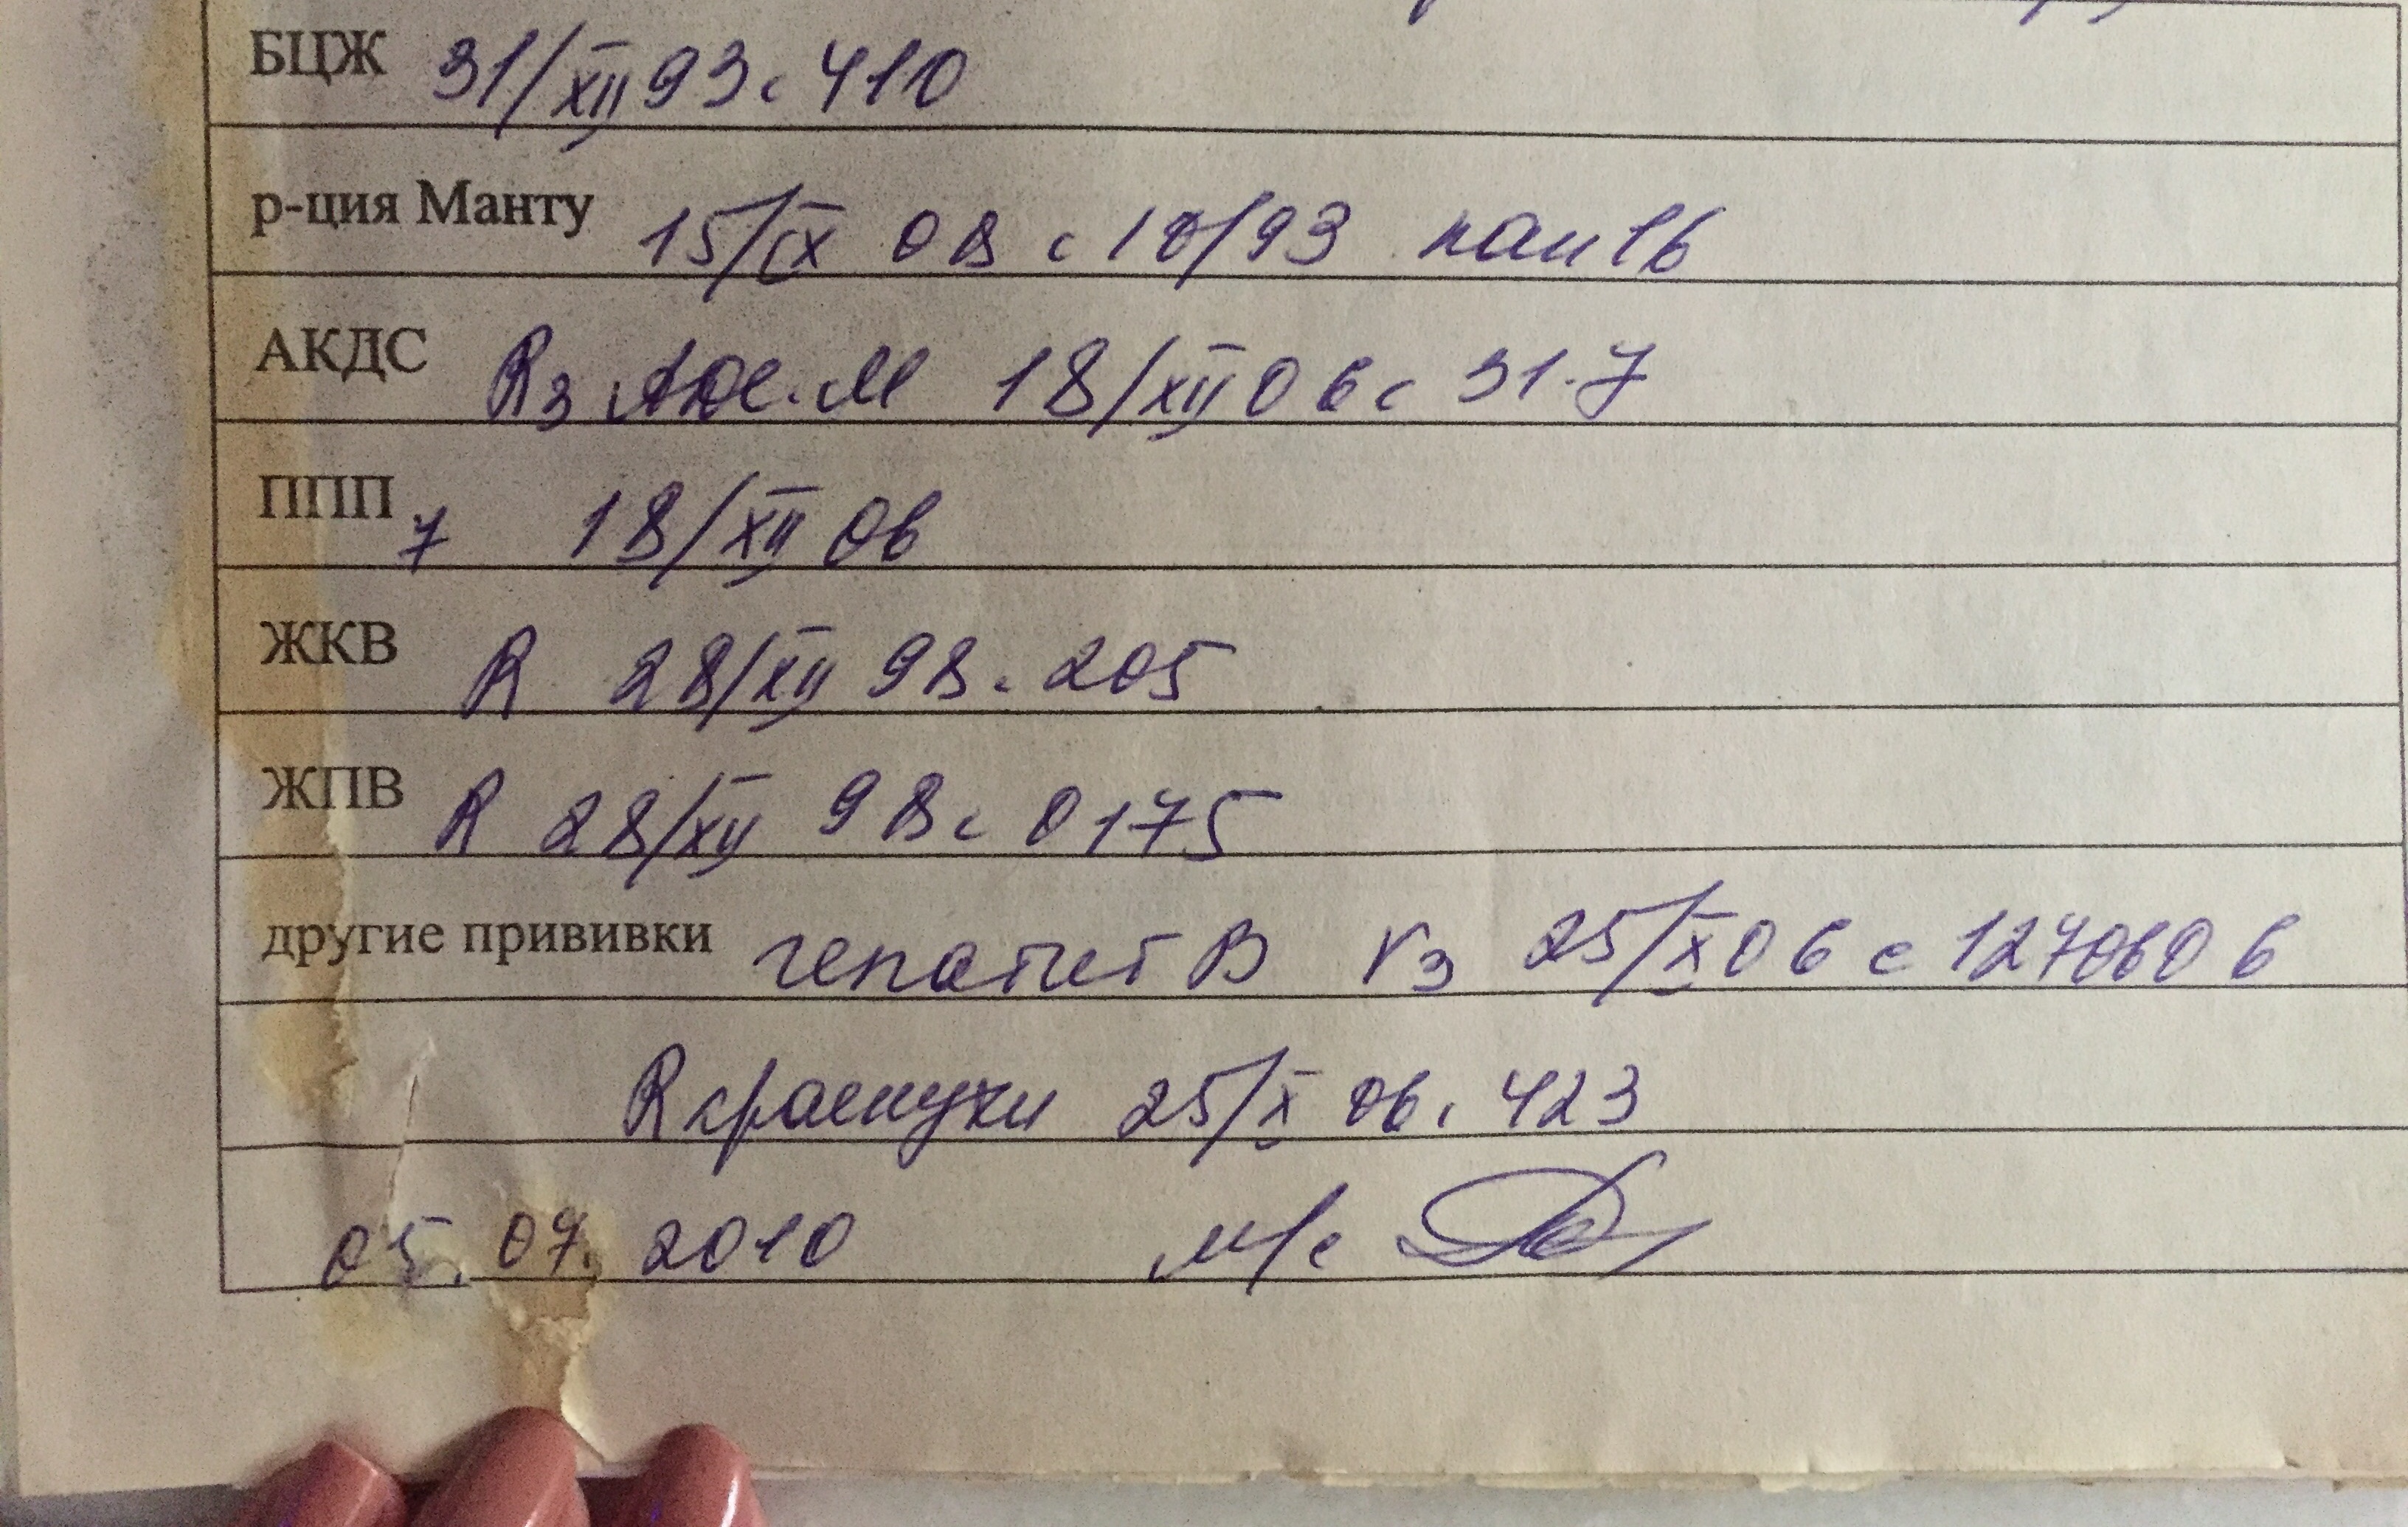 БЦЖ 31/XII 93 с 410
р-ция Манту 15/IX 08 с 18/93 пап 16
АКДС R3 АДС.М 18/XII 06 с 31-7
ППП 7 18/XII 06
ЖКВ R 28/XII 98 с 205
ЖПВ R 28/XII 98 с 0175
другие прививки гепатит В V3 25/X 06 с 1270606
R краснухи 25/X 06 с 423
05. 07. 2010 м/с